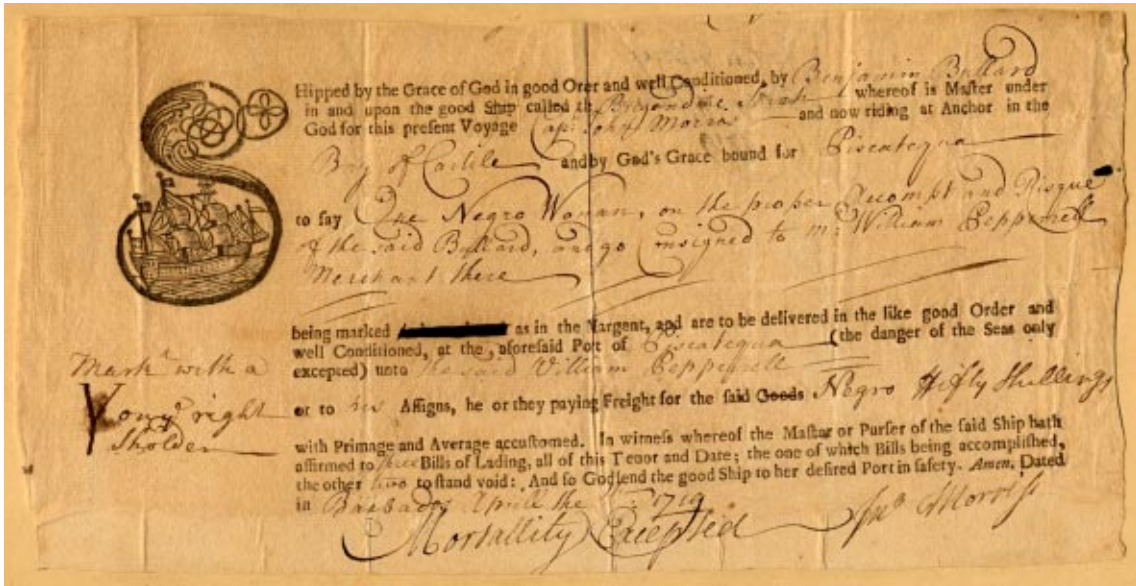 SHipped by the Grace of God in good Orer and well Conditioned, by Benjamin Bullard
in and upon the good Ship called the Brigandine Sarah whereof is Master under
God for this present Voyage Cap. John Morris and now riding at Anchor in the
Bay of Carlile and by God's Grace bound for Piscatequa
to say One Negro Woman, on the proper Accompt and Risque
of the said Bullard, and go Consigned to Mr. William Pepperrell
Merchant there
being marked as in the Margent, and are to be delivered in the like good Order and
well Conditioned, at the aforesaid Port of Piscatequa (the danger of the Seas only
excepted) unto the said William Pepperrell
or to his Assigns, he or they paying Freight for the said Goods Negro Fifty Shillings
with Primage and Average accustomed. In witness whereof the Master or Purser of the said Ship hath
affirmed to three Bills of Lading, all of this Tenor and Date; the one of which Bills being accomplished,
the other two to stand void: And so God send the good Ship to her desired Port in safety. Amen. Dated
in Barbados Aprill the 1719
Mortallity Excepted Jno Morris
Markt with a
Y on ye right
Sholder